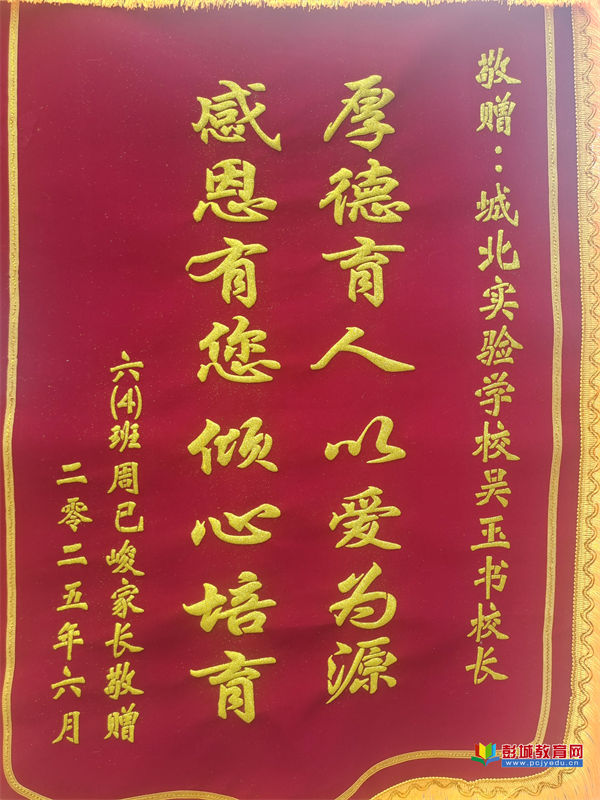 敬赠：城北实验学校吴玉书校长
厚德育人以爱为源
感恩有您倾心培育
六(4)班周已峻家长敬赠
二零二五年六月
彭城教育网
www.pcjyedu.cn